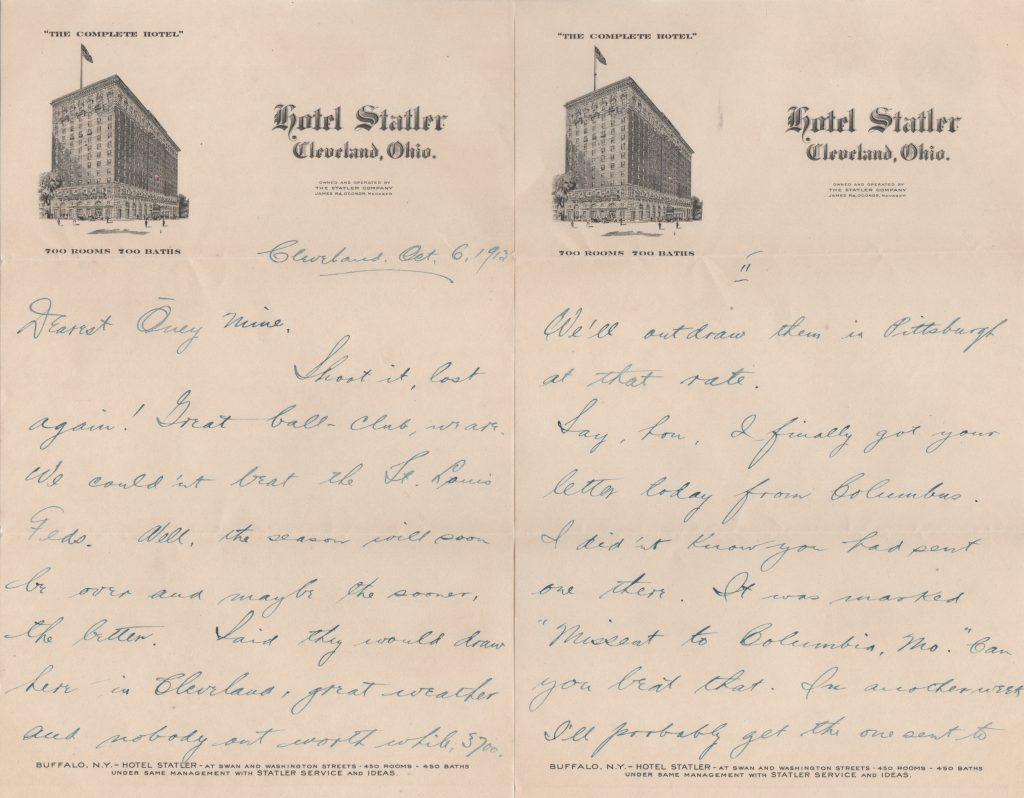 "THE COMPLETE HOTEL"
Hotel Statler
Cleveland, Ohio.
OWNED AND OPERATED BY
THE STATLER COMPANY
JAMES
700 ROOMS 700 BATHS
Cleveland. Oct. 6, 191
Dearest Oney Mine,
Shoot it, lost
again! Great ball-club, we are.
We could'nt beat the St. Louis
Feds. Well, the season will soon
be over and maybe the sooner,
the better. Said they would draw
here in Cleveland, great weather
and nobody out worth while, 3700.
BUFFALO, N.Y.–HOTEL STATLER-AT SWAN AND WASHINGTON STREETS-450 ROOMS-450 BATHS
UNDER SAME MANAGEMENT WITH STATLER SERVICE AND IDEAS.
"THE COMPLETE HOTEL"
Hotel Statler
Cleveland, Ohio.
OWNED AND OPERATED BY
THE STATLER COMPANY
JAMES
700 ROOMS 700 BATHS
II
We'll outdraw them in Pittsburgh
at that rate.
Say, hon, I finally got your
letter today from Columbus.
I did'nt know you had sent
one there. It was marked
"Missent to Columbia, Mo." Can
you beat that. In another week
I'll probably get the one sent to
BUFFALO, N.Y.–HOTEL STATLER-AT SWAN AND WASHINGTON STREETS-450 ROOMS-450 BATHS
UNDER SAME MANAGEMENT WITH STATLER SERVICE AND IDEAS.